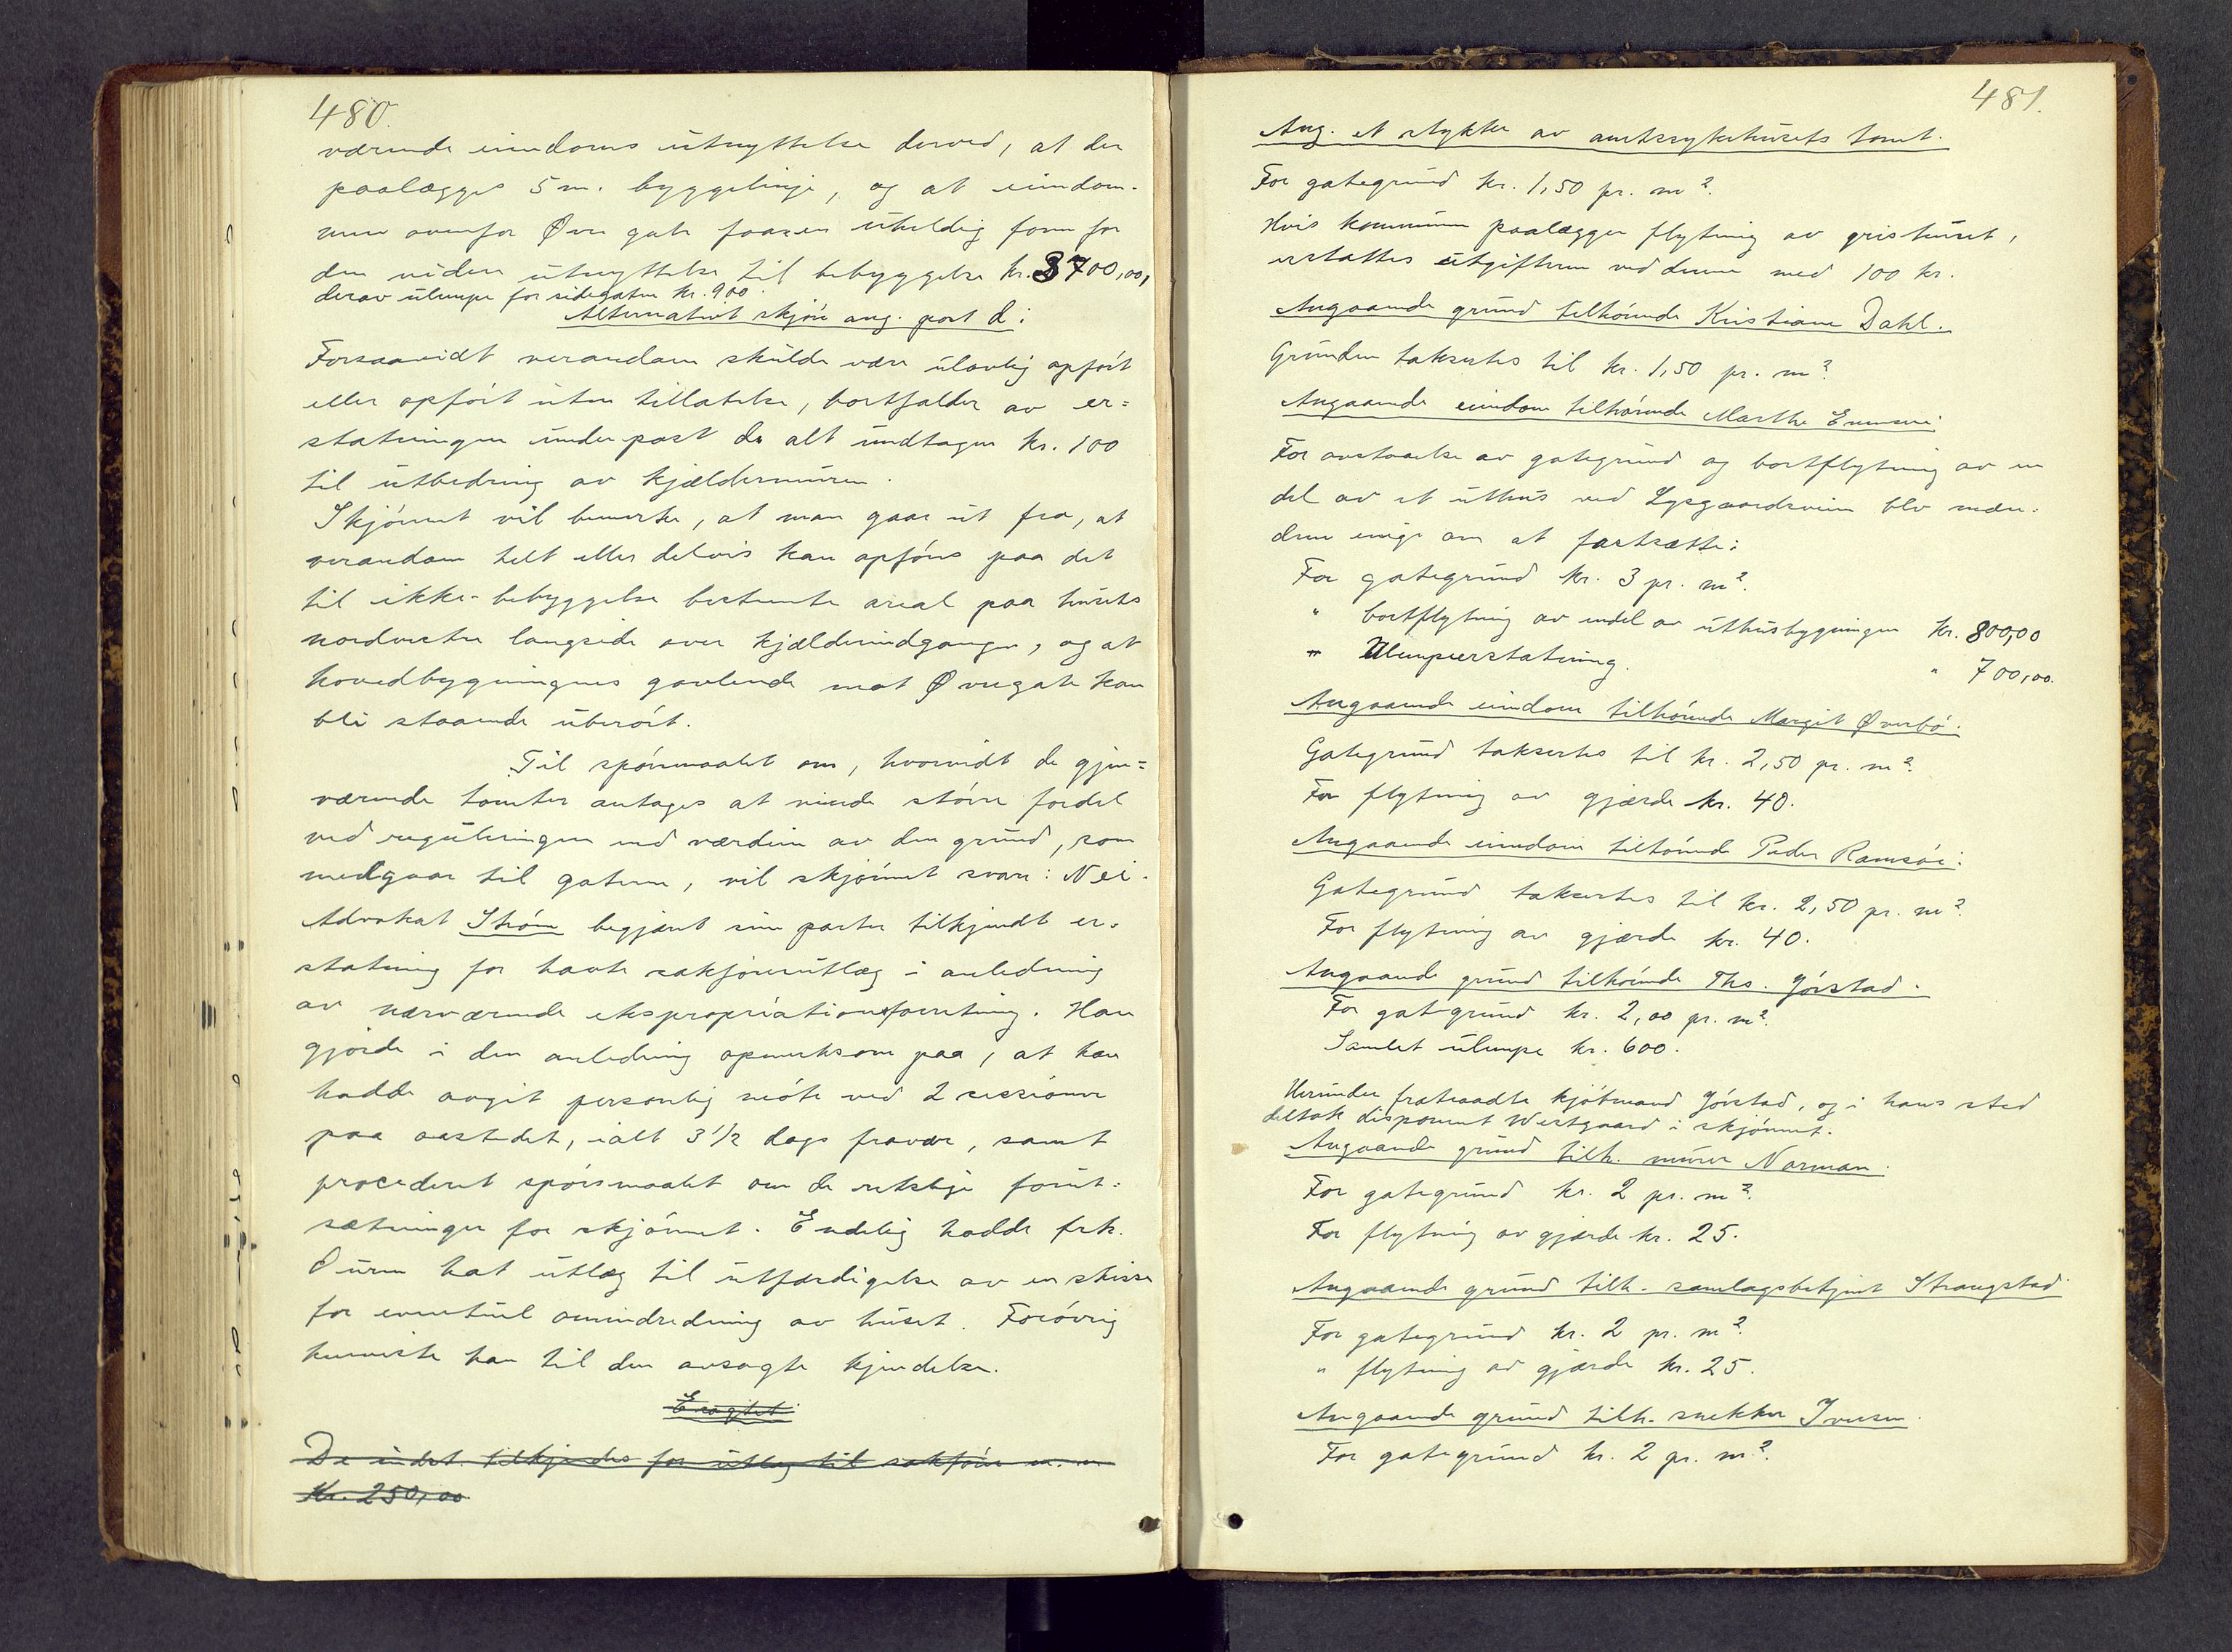 480.
værende eiendoms utnyttelse derved, at der
paalægges 5 m. byggelinje, og at eiendom-
men ovenfor Øvre gate faar en uheldig form for
den videre utnyttelse til bebyggelse kr. 3700,00,
derav ulempe for sidegaten kr. 900.
Alternativt skjøn ang. post d:
Forsaavidt verandaen skulde være ulovlig opført
eller opført uten tillatelse, bortfalder av er=
statningen under post d. alt undtagen kr. 100
til utbedring av kjældermuren.
Skjønnet vil bemerke, at man gaar ut fra, at
verandaen helt eller delvis kan opføres paa det
til ikke-bebyggelse bestemte areal paa husets
nordvestre langside over kjælderindgangen, og at
hovedbygningens gavlende mot Øvregate kan
bli staaende uberørt.
Til spørsmaalet om, hvorvidt de gjen=
værende tomter antages at vinde større fordel
ved reguleringen end værdien av den grund, som
medgaar til gaterne, vil skjønnet svare: Nei.
Advokat Strøm begjært sine parter tilkjendt er=
statning for havte sakførerutlæg i anledning
av nærværende ekspropriationsforretning. Han
gjorde i den anledning opmerksom paa, at han
hadde avgit personlig møte ved 2 sessioner
paa aastedet, ialt 3 1/2 dags fravær, samt
procederet spørsmaalet om de retslige forut=
sætninger for skjønnet. Endelig hadde frk.
hat utlæg til utfærdigelse av en skisse
for eventuel omindredning av huset. Forøvrig
henviste han til den avsagte kjendelse.
Eragtet:
tilkjendes for utlæg til sakfører m. m
Kr. 250,00
481.
Ang. et stykke av amtssykehusets tomt.
For gategrund kr. 1,50 pr. m².
Hvis kommunen paalægger flytning av grishuset,
erstattes utgifterne ved denne med 100 kr.
Angaaende grund tilhørende Kristiane Dahl.
Grunden taksertes til kr. 1,50 pr. m².
Angaaende eiendom tilhørende Marthe
For avstaaelse av gategrund og bortflytning av en
del av et uthus ved Lysgaardsveien blev mæn=
dene enige om at fastsætte:
For gategrund kr. 3 pr. m².
" bortflytning av endel av uthusbygningen kr. 800,00
" Ulempeerstatning. " 700,00.
Angaaende eiendom tilhørende Margit Øverbø.
Gategrund taksertes til kr. 2,50 pr. m².
For flytning av gjærde kr. 40.
Angaaende eiendom tilhørende Peder Ramsøi.
Gategrund taksertes til kr. 2,50 pr. m².
For flytning av gjærde kr. 40.
Angaaende grund tilhørende Ths. Jørstad.
For gategrund kr. 2,00 pr. m².
Samlet ulempe kr. 600.
Herunder fratraadte kjøbmand Jørstad, og i hans sted
deltok disponent Westgaard i skjønnet.
Angaaende grund tilh. murer Norman.
For gategrund kr. 2 pr. m².
For flytning av gjærde kr. 25.
Angaaende grund tilh. samlagsbetjent Strangstad
For gategrund kr. 2 pr. m².
" flytning av gjærde kr. 25.
Angaaende grund tilh. snekker Iversen.
For gategrund kr. 2 pr. m².